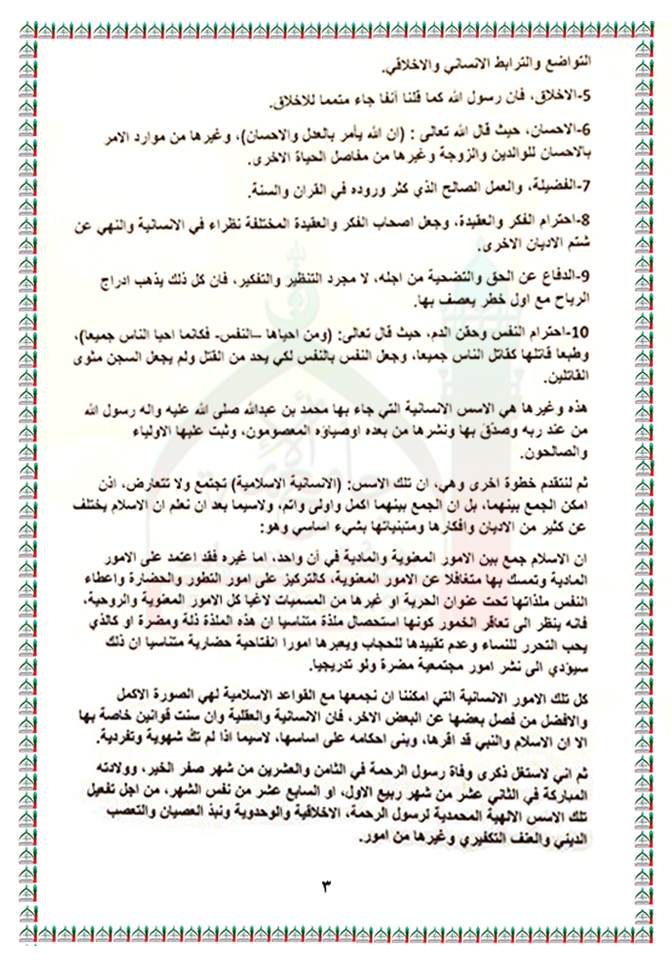 التواضع والترابط الانساني والاخلاقي.
5-الاخلاق، فان رسول الله كما قلنا آنفا جاء متمما للاخلاق.
6-الاحسان، حيث قال الله تعالى : (ان الله يأمر بالعدل والاحسان)، وغيرها من موارد الامر
بالاحسان للوالدين والزوجة وغيرها من مفاصل الحياة الاخرى.
7-الفضيلة، والعمل الصالح الذي كثر وروده في القران والسنة.
8-احترام الفكر والعقيدة، وجعل اصحاب الفكر والعقيدة المختلفة نظراء في الانسانية والنهي عن
شتم الاديان الاخرى.
9-الدفاع عن الحق والتضحية من اجله، لا مجرد التنظير والتفكير، فان كل ذلك يذهب ادراج
الرياح مع اول خطر يعصف بها.
10-احترام النفس وحقن الدم، حيث قال تعالى: (ومن احياها –النفس- فكانما احيا الناس جميعا)،
وطبعا قاتلها كقاتل الناس جميعا، وجعل النفس بالنفس لكي يحد من القتل ولم يجعل السجن مثوى
القاتلين.
هذه وغيرها هي الاسس الانسانية التي جاء بها محمد بن عبدالله صلى الله عليه واله رسول الله
من عند ربه وصدّق بها ونشرها من بعده اوصياؤه المعصومون، وثبت عليها الاولياء
والصالحون.
ثم لنتقدم خطوة اخرى وهي، ان تلك الاسس: (الانسانية الاسلامية) تجتمع ولا تتعارض، اذن
امكن الجمع بينهما، بل ان الجمع بينهما اكمل واولى واتم، ولاسيما بعد ان نعلم ان الاسلام يختلف
عن كثير من الاديان وافكارها ومتبنياتها بشيء اساسي وهو:
ان الاسلام جمع بين الامور المعنوية والمادية في آن واحد، اما غيره فقد اعتمد على الامور
المادية وتمسك بها متغافلا عن الامور المعنوية، كالتركيز على امور التطور والحضارة واعطاء
النفس ملذاتها تحت عنوان الحرية او غيرها من المسميات لاغيا كل الامور المعنوية والروحية،
فانه ينظر الى تعاقر الخمور كونها استحصال ملذة متناسيا ان هذه الملذة ذلة ومضرة او كالذي
يحب التحرر للنساء وعدم تقييدها للحجاب ويعبرها امورا انفتاحية حضارية متناسيا ان ذلك
سيؤدي الى نشر امور مجتمعية مضرة ولو تدريجيا.
كل تلك الامور الانسانية التي امكننا ان نجمعها مع القواعد الاسلامية لهي الصورة الاكمل
والافضل من فصل بعضها عن البعض الاخر، فان الانسانية والعقلية وان سنت قوانين خاصة بها
الا ان الاسلام والنبي قد اقرها، وبنى احكامه على اساسها، لاسيما اذا لم تكُ شهوية وتفردية.
ثم اني لاستغل ذكرى وفاة رسول الرحمة في الثامن والعشرين من شهر صفر الخير، وولادته
المباركة في الثاني عشر من شهر ربيع الاول، او السابع عشر من نفس الشهر، من اجل تفعيل
تلك الاسس الالهية المحمدية لرسول الرحمة، الاخلاقية والوحدوية ونبذ العصيان والتعصب
الديني والعنف التكفيري وغيرها من امور.
٣